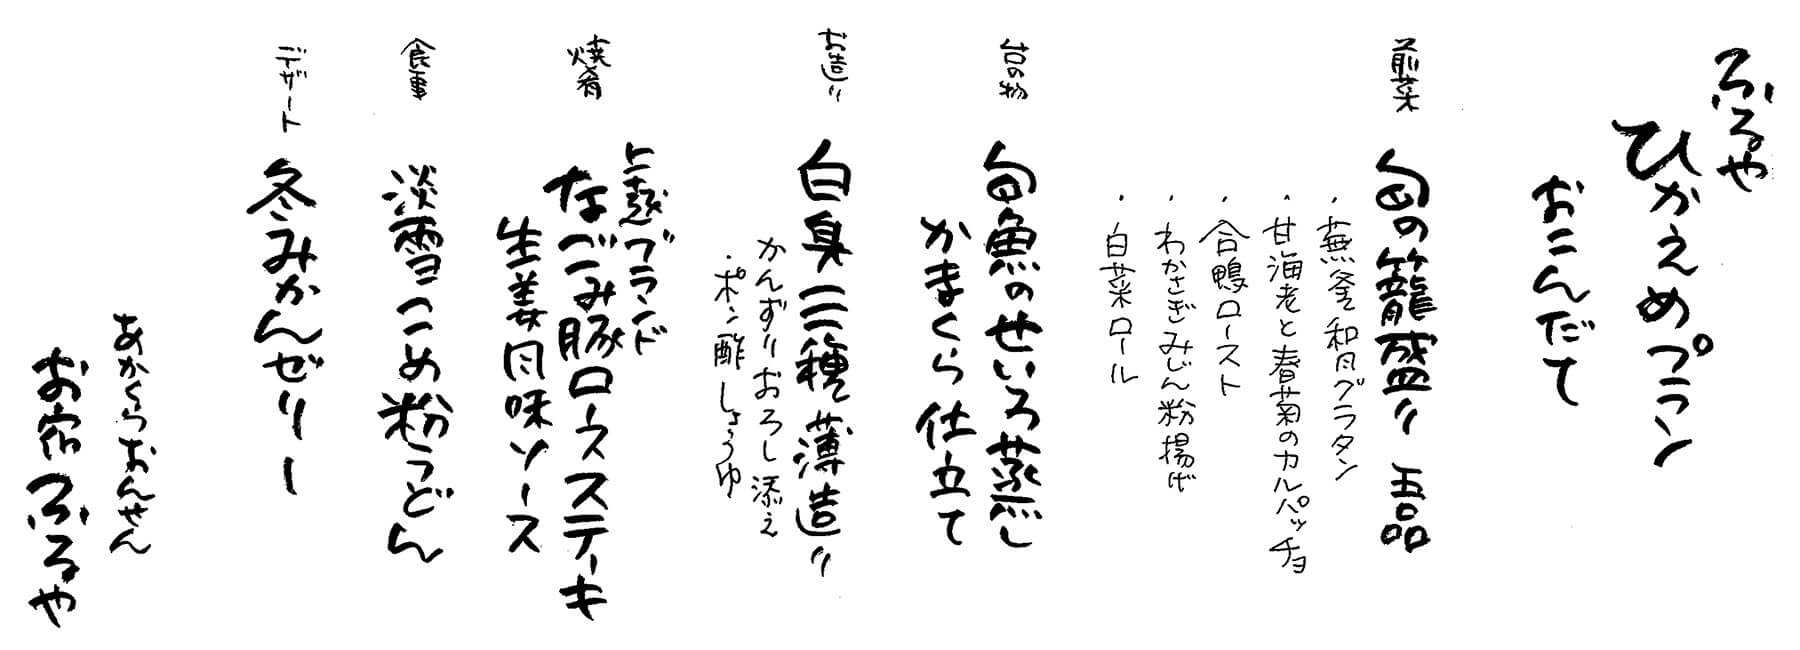 ふるや
ひかえめプラン
おこんだて
前菜 旬の籠盛り 五品
・蕪釜和风グラタン
・甘海老と春菊のカルパッチョ
・合鴨ロースト
・わかさぎみじん粉揚げ
・白菜ロール
台の物 旬魚のせいろ蒸し
かまくら仕立て
お造り 白身三種薄造り
かんずりおろし添え
・ポン酢しょうゆ
焼肴 上越ブランド
なごみ豚ロースステーキ
生姜风味ソース
食事 淡雪こめ粉うどん
デザート 冬みかんゼリー
あかくらおんせん
お宿ふるや